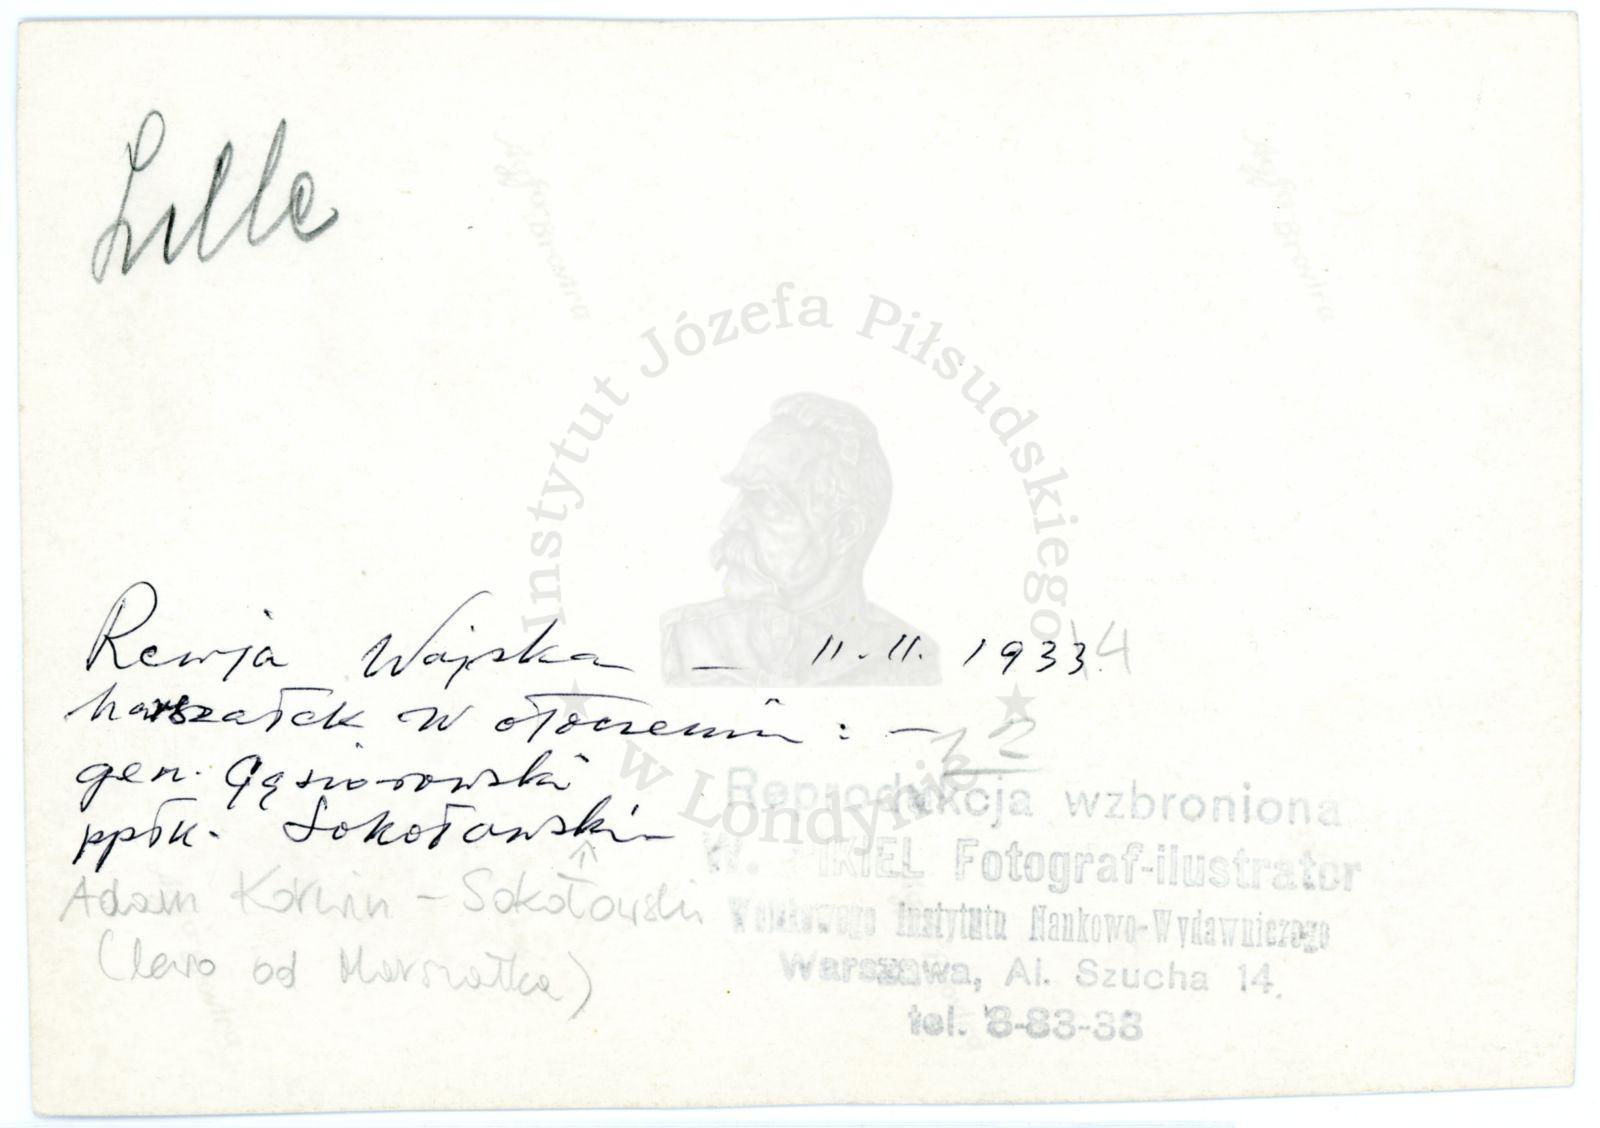 Lille
Instytut Józefa Piłsudskiego
w Londynie
Rewja Wojska – 11.11.1933. 4
Marszałek w otoczeniu: –
gen. Gąsiorowski
ppłk. Sokołowski
Adam Korwin-Sokołowski
(lewo od Marszałka)
22
Reprodukcja wzbroniona
W. PIKIEL Fotograf-ilustrator
Wojskowego Instytutu Naukowo-Wydawniczego
Warszawa, Al. Szucha 14.
tel. 8-83-38